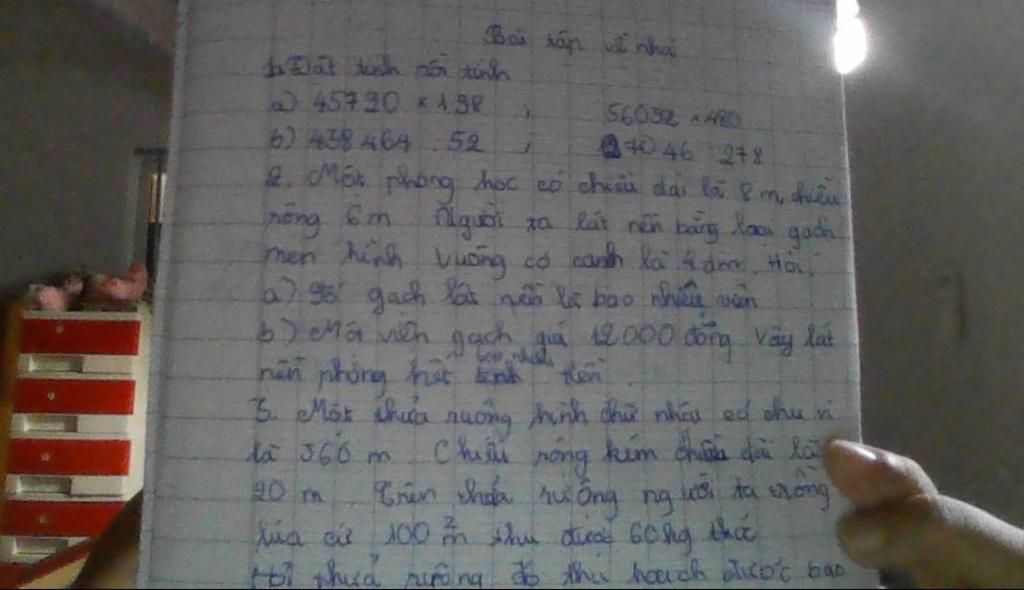 Bài tập về nhà
1. Đặt tính rồi tính
a) 45790 × 198 ; 56032 × 480
b) 438464 . 52 ; 27046 : 278
2. Một phòng học có chiều dài là 8 m, chiều
rông 6 m Người ta lát nền bằng loại gạch
men hình vuông có cạnh là 4 dm. Hỏi:
a) Số gạch lát nền là bao nhiêu viên
b) Mỗi viên gạch giá 12.000 đồng Vậy lát
nền phòng hết bao nhiêu tiền
3. Một thửa ruộng hình chữ nhật có chu vi
là 360 m. Chiều rông kém chiều dài là
20 m Trên thửa ruộng người ta trồng
lúa cứ 100 m² thu được 60 kg thóc
Hỏi thửa ruộng đó thu hoạch được bao